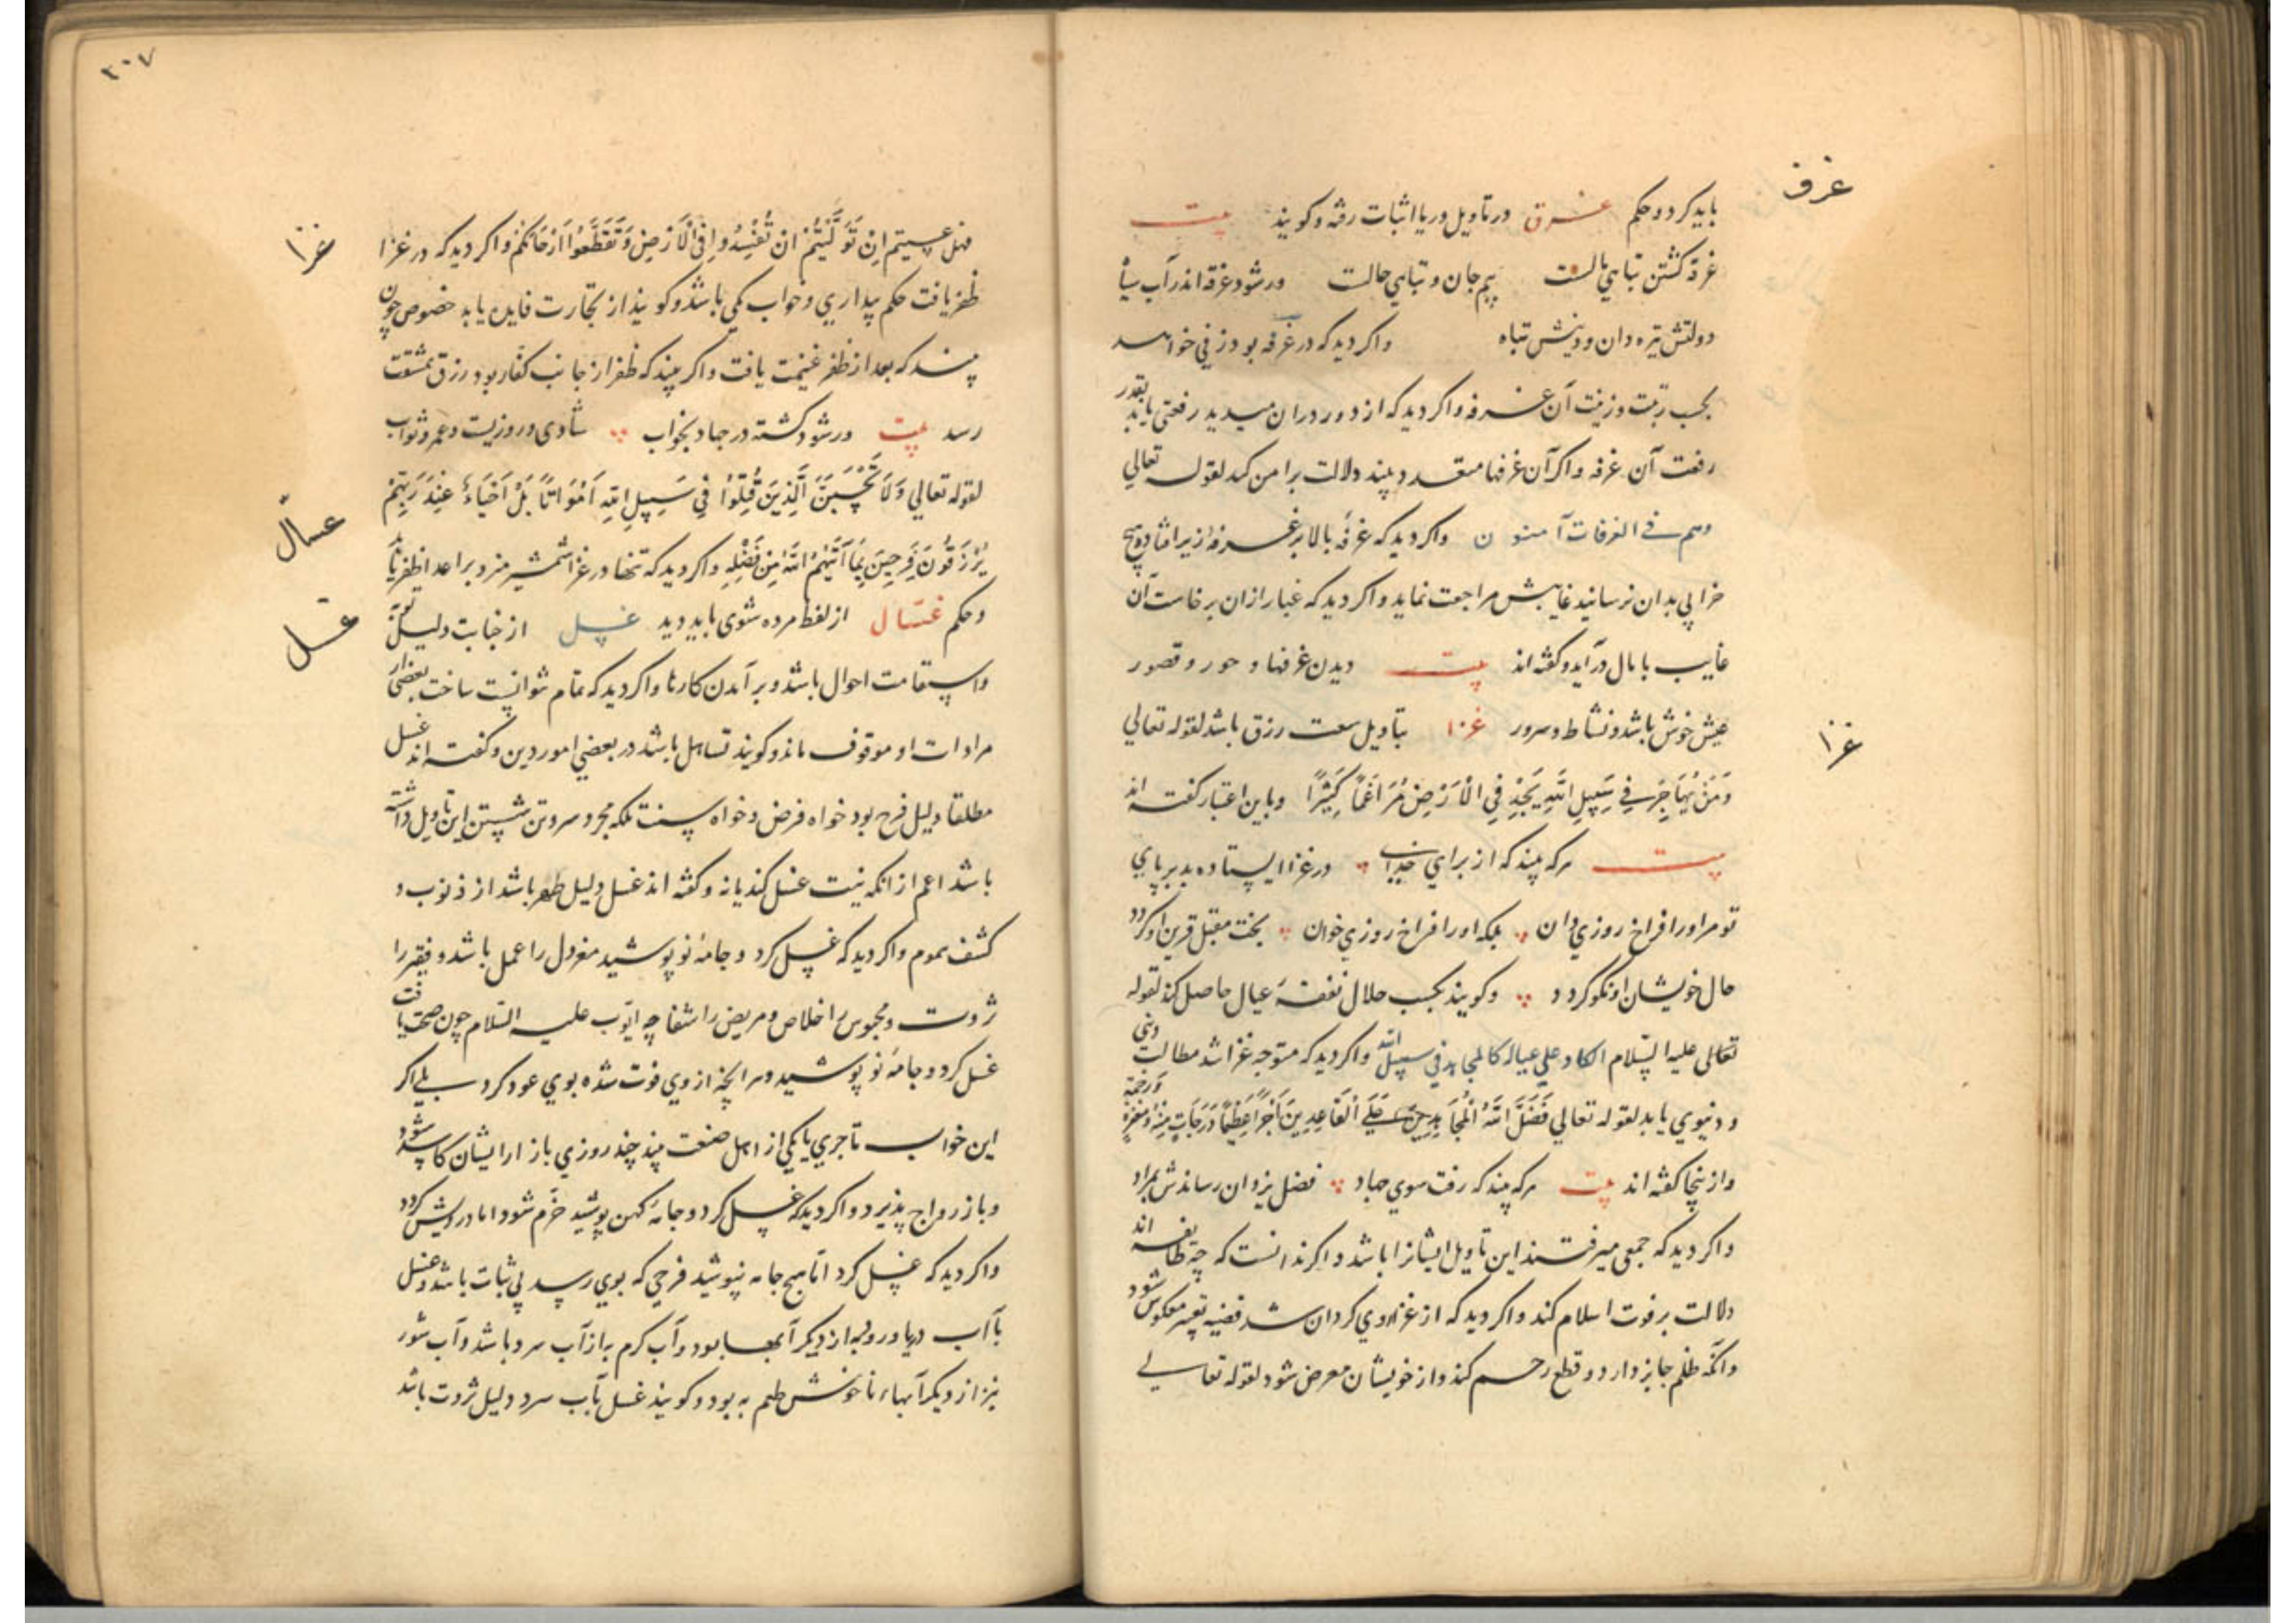 غرف
باید کرد و حکم غرق در تاویل دریا اثبات رفته و کویند بیت
غرقه کشتن تباهی مالست بیم جان و تباهی حالست ور شود غرقه اندر آب سیاه
دولتش تیره دان و دینش تباه واکر دید که در غرفه بود زنی خواهد
بحسب رتبت و زینت آن غرفه واکر دید که از دور در ان میدید رفعتی یابد بقدر
رفعت آن غرفه واکر آن غرفها متعدد بیند دلالت بر امن کند لقوله تعالی
وهم فی الغرفات آمنون واکر دید که غرفه بالا بر غرفه زیر افتاد و هیچ
خرابی بدان نرسانید غایبش مراجعت نماید واکر دید که غبار ازان برخاست آن
غایب با مال در آید و کفته اند بیت دیدن غرفها و حور و قصور
عیش خوش باشد و نشاط و سرور غزا بتاویل سعت رزق باشد لقوله تعالی
غزا
وَمَنْ یُهَاجِرْ فِی سَبِیلِ اللَّهِ یَجِدْ فِی الْأَرْضِ مُرَاغَمًا کَثِیرًا وباین اعتبار کفته اند
بیت هرکه بیند که از برای خدای در غزا ایستاده بد بر پای
تو مر اورا فراخ روزی دان بلکه اورا فراخ روزی خوان بخت مقبل قرین او کردد
حال خویشان او نکو کردد وکویند بکسب حلال نفقه عیال حاصل کند لقوله
تعالی علیه السّلام الکاد علی عیاله کالمجاهد فی سبیل الله واکر دید که متوجه غزا شد مطالب دینی
و دنیوی یابد لقوله تعالی فَضَّلَ اللَّهُ الْمُجَاهِدِینَ عَلَی الْقَاعِدِینَ أَجْرًا عَظِیمًا دَرَجَاتٍ مِنْهُ وَمَغْفِرَةً وَرَحْمَةً
و ازینجا کفته اند بیت هرکه بیند که رفت سوی جهاد فضل یزدان رساندش بمراد
واکر دید که جمعی میرفتند این تاویل ایشانرا باشد واکر ندانست که چه طایفه اند
دلالت بر فوت اسلام کند واکر دید که از غزا روی کردان شد قضیه تعبیر معکوس شود
وانکه ظلم جایز دارد و قطع رحم کند و از خویشان معرض شود لقوله تعالی
۳۰۷
فهل عسیتم اِنْ تَوَلَّیْتُمْ ان تُفْسِدُوا فِی الْأَرْضِ وَتُقَطِّعُوا أَرْحَامَکُمْ واکر دید که در غزا
غزا
ظفر یافت حکم بیداری و خواب یکی باشد و کویند از تجارت فایده یابد خصوص چون
بیند که بعد از ظفر غنیمت یافت واکر بیند که ظفر از جانب کفّار بود رزق بمشقت
رسد بیت ور شود کشته در جهاد بخواب شادی و روزیست و عمر و ثواب
لقوله تعالی وَلَا تَحْسَبَنَّ الَّذِینَ قُتِلُوا فِی سَبِیلِ اللَّهِ أَمْوَاتًا بَلْ أَحْیَاءٌ عِنْدَ رَبِّهِمْ
غسّال
یُرْزَقُونَ فَرِحِینَ بِمَا آتَیهُمُ اللَّهُ مِنْ فَضْلِهِ واکر دید که تنها در غزا شمشیر میزد بر اعدا ظفر یابد
و حکم غسّال از لفظ مرده شوی باید دید غسل از جنابت دلیل توبه
غسل
واستقامت احوال باشد و بر آمدن کارها واکر دید که تمام نتوانست ساخت بعضی از
مرادات او موقوف ماند و کویند تساهل باشد در بعضی امور دین و کفته اند غسل
مطلقا دلیل فرح بود خواه فرض و خواه سنت بلکه مجرد سر و تن شستن این تاویل داشته
باشد اعم از انکه نیت غسل کند یا نه و کفته اند غسل دلیل طهر باشد از ذنوب و
کشف هموم واکر دید که غسل کرد و جامهٔ نو پوشید معزول را عمل باشد و فقیر را
ثروت و محبوس را خلاص و مریض را شفا چه ایّوب علیه السّلام چون صحت یافت
غسل کرد و جامهٔ نو پوشید و هر آنچه از وی فوت شده بوی عود کرد بلی اکر
این خواب تاجری یا یکی از اهل صنعت بیند چند روزی بازار ایشان کاسد شود
و باز رواج پذیرد واکر دید که غسل کرد و جامهٔ کهن پوشید خرّم شود اما درویش کردد
واکر دید که غسل کرد امّا هیچ جامه نپوشید فرحی که بوی رسد بی ثبات باشد و غسل
بآب دریا و رود به از دیکر آبها بود و آب کرم به از آب سرد باشد و آب شور
نیز از دیکر آبهاء ناخوش طعم به بود و کویند غسل بآب سرد دلیل ثروت باشد